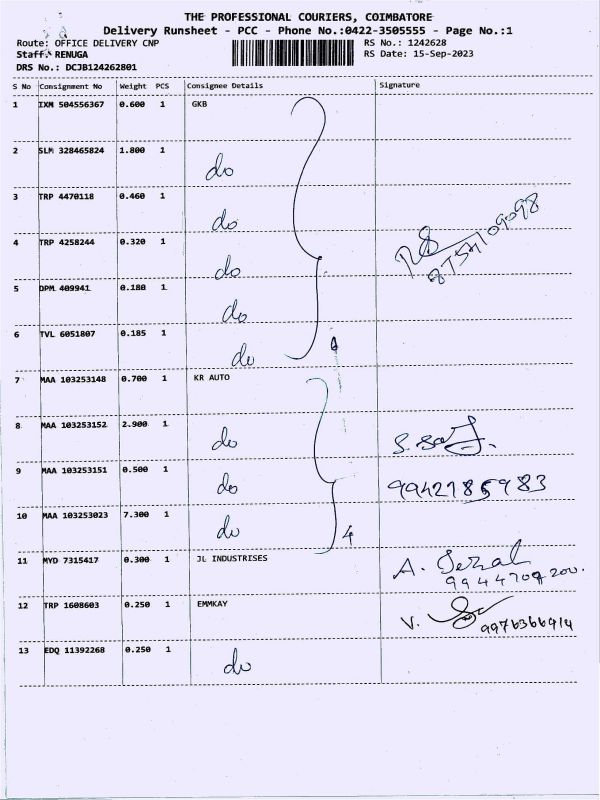 THE PROFESSIONAL COURIERS, COIMBATORE
Delivery Runsheet - PCC - Phone No.:0422-3505555 - Page No.:1
Route: OFFICE DELIVERY CNP
RS No.: 1242628
Staff: RENUGA
RS Date: 15-Sep-2023
DRS No.: DCJB124262801
S No Consignment No Weight PCS Consignee Details Signature
1 IXM 504556367 0.600 1 GKB
2 SLM 328465824 1.800 1 do
3 TRP 4470118 0.460 1 do
4 TRP 4258244 0.320 1 do
5 DPM 409941 0.180 1 do
6 TVL 6051807 0.185 1 do
7 MAA 103253148 0.700 1 KR AUTO
8 MAA 103253152 2.900 1 do
9 MAA 103253151 0.500 1 do
10 MAA 103253023 7.300 1 do 4
11 MYD 7315417 0.300 1 JL INDUSTRISES A.
12 TRP 1608603 0.250 1 EMMKAY V.
9976366914
13 EDQ 11392268 0.250 1 do